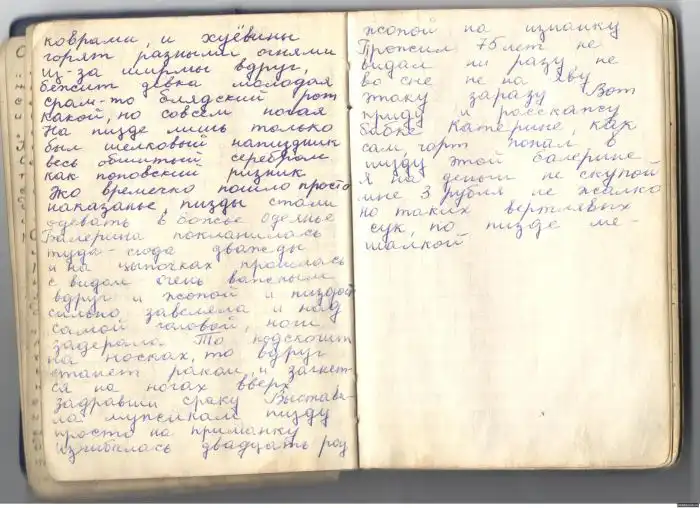 коврами, и хуёвины
горят разными огнями
из-за ширмы вдруг,
бежит девка молодая
срам-то блядский рот
какой, но совсем нагая
На пизде лишь только
был шелковый напиздник
весь обшитый серебром
как поповский ризник
Эко времечко пошло просто
наказанье, пизды стали
одевать в божье оделнье
Балерина поклонилась
туда-сюда дважды
и на цыпочках прошлась
с видом очень важным
вдруг и жопой и пиздой
сильно завеляла и над
самой головой, ноги
задерала. То подскочит
на носках, то вдруг
станет раком, и загнет-
ся на ногах вверх
задравши сраку Выстави-
ла мужикам пизду
просто на приманку
изгибалась двадцать раз
жопой на изнанку
Прожил 75 лет не
видал ни разу, не
во сне не на яву
этаку заразу Вот
приду и расскажу
бабке Катерине, как
сам, чорт попал в
пизду этой балерине
Я на деньги не скупой
мне 3 рубля не жалко
но таких вертлявых
сук, по пизде ме-
шалкой